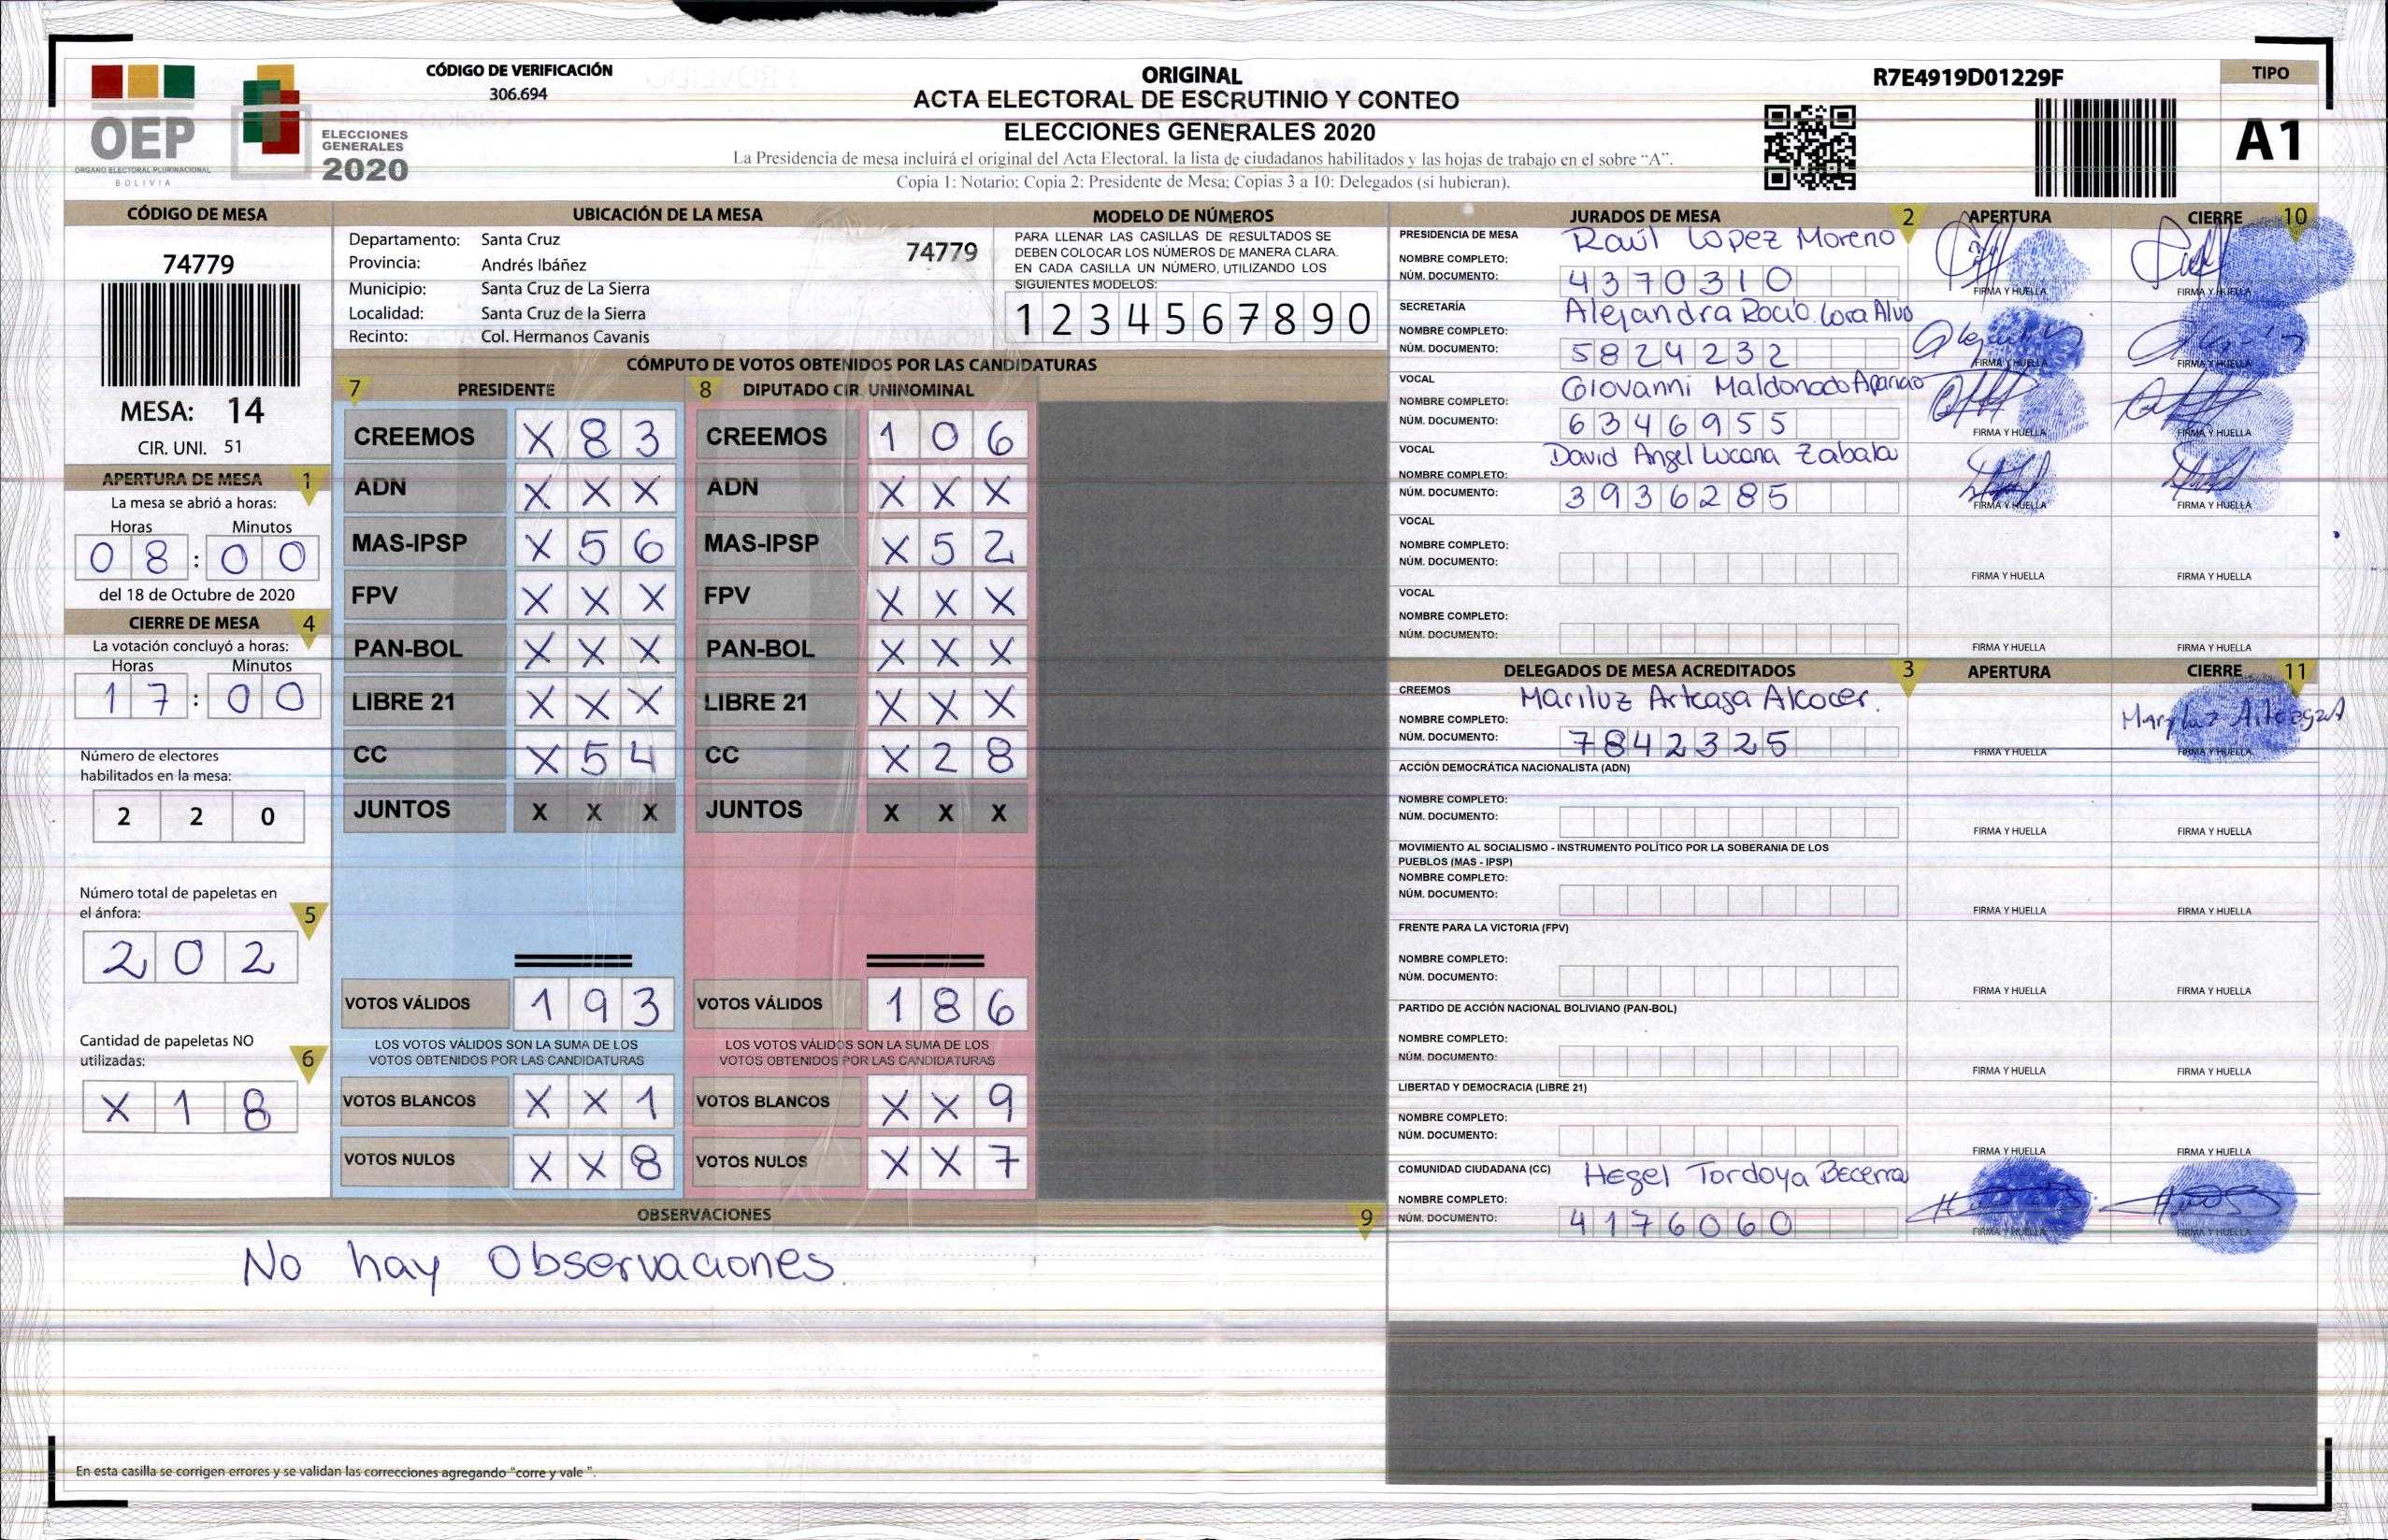 CÓDIGO DE VERIFICACIÓN
306.694
OEP
ÓRGANO ELECTORAL PLURINACIONAL
BOLIVIA
ELECCIONES
GENERALES
2020
ORIGINAL
ACTA ELECTORAL DE ESCRUTINIO Y CONTEO
ELECCIONES GENERALES 2020
La Presidencia de mesa incluirá el original del Acta Electoral, la lista de ciudadanos habilitados y las hojas de trabajo en el sobre “A”.
Copia 1: Notario; Copia 2: Presidente de Mesa; Copias 3 a 10: Delegados (si hubieran).
R7E4919D01229F
TIPO
A1
CÓDIGO DE MESA
74779
MESA: 14
CIR. UNI. 51
APERTURA DE MESA 1
La mesa se abrió a horas:
Horas Minutos
0 8 : 0 0
del 18 de Octubre de 2020
CIERRE DE MESA 4
La votación concluyó a horas:
Horas Minutos
1 7 : 0 0
Número de electores
habilitados en la mesa:
2 2 0
Número total de papeletas en
el ánfora: 5
2 0 2
Cantidad de papeletas NO
utilizadas: 6
X 1 8
UBICACIÓN DE LA MESA
Departamento: Santa Cruz
74779
Provincia: Andrés Ibáñez
Municipio: Santa Cruz de La Sierra
Localidad: Santa Cruz de la Sierra
Recinto: Col. Hermanos Cavanis
MODELO DE NÚMEROS
PARA LLENAR LAS CASILLAS DE RESULTADOS SE
DEBEN COLOCAR LOS NÚMEROS DE MANERA CLARA.
EN CADA CASILLA UN NÚMERO, UTILIZANDO LOS
SIGUIENTES MODELOS:
1 2 3 4 5 6 7 8 9 0
CÓMPUTO DE VOTOS OBTENIDOS POR LAS CANDIDATURAS
7 PRESIDENTE 8 DIPUTADO CIR. UNINOMINAL
CREEMOS X 8 3 CREEMOS 1 0 6
ADN X X X ADN X X X
MAS-IPSP X 5 6 MAS-IPSP X 5 2
FPV X X X FPV X X X
PAN-BOL X X X PAN-BOL X X X
LIBRE 21 X X X LIBRE 21 X X X
CC X 5 4 CC X 2 8
JUNTOS X X X JUNTOS X X X
VOTOS VÁLIDOS 1 9 3 VOTOS VÁLIDOS 1 8 6
LOS VOTOS VÁLIDOS SON LA SUMA DE LOS LOS VOTOS VÁLIDOS SON LA SUMA DE LOS
VOTOS OBTENIDOS POR LAS CANDIDATURAS VOTOS OBTENIDOS POR LAS CANDIDATURAS
VOTOS BLANCOS X X 1 VOTOS BLANCOS X X 9
VOTOS NULOS X X 8 VOTOS NULOS X X 7
OBSERVACIONES 9
No hay Observaciones.
En esta casilla se corrigen errores y se validan las correcciones agregando “corre y vale ”.
JURADOS DE MESA 2 APERTURA CIERRE 10
PRESIDENCIA DE MESA Raúl Lopez Moreno
NOMBRE COMPLETO:
NÚM. DOCUMENTO: 4370310 FIRMA Y HUELLA FIRMA Y HUELLA
SECRETARÍA Alejandra Rocío
NOMBRE COMPLETO:
NÚM. DOCUMENTO: 5824232 FIRMA Y HUELLA FIRMA Y HUELLA
VOCAL Giovanni Maldonado
NOMBRE COMPLETO:
NÚM. DOCUMENTO: 6346955 FIRMA Y HUELLA FIRMA Y HUELLA
VOCAL David Angel Lucana Zabala
NOMBRE COMPLETO:
NÚM. DOCUMENTO: 3936285 FIRMA Y HUELLA FIRMA Y HUELLA
VOCAL
NOMBRE COMPLETO:
NÚM. DOCUMENTO: FIRMA Y HUELLA FIRMA Y HUELLA
VOCAL
NOMBRE COMPLETO:
NÚM. DOCUMENTO: FIRMA Y HUELLA FIRMA Y HUELLA
DELEGADOS DE MESA ACREDITADOS 3 APERTURA CIERRE 11
CREEMOS Mariluz Alcocer.
NOMBRE COMPLETO:
NÚM. DOCUMENTO: 7842325 FIRMA Y HUELLA FIRMA Y HUELLA
ACCIÓN DEMOCRÁTICA NACIONALISTA (ADN)
NOMBRE COMPLETO:
NÚM. DOCUMENTO: FIRMA Y HUELLA FIRMA Y HUELLA
MOVIMIENTO AL SOCIALISMO - INSTRUMENTO POLÍTICO POR LA SOBERANIA DE LOS
PUEBLOS (MAS - IPSP)
NOMBRE COMPLETO:
NÚM. DOCUMENTO: FIRMA Y HUELLA FIRMA Y HUELLA
FRENTE PARA LA VICTORIA (FPV)
NOMBRE COMPLETO:
NÚM. DOCUMENTO: FIRMA Y HUELLA FIRMA Y HUELLA
PARTIDO DE ACCIÓN NACIONAL BOLIVIANO (PAN-BOL)
NOMBRE COMPLETO:
NÚM. DOCUMENTO: FIRMA Y HUELLA FIRMA Y HUELLA
LIBERTAD Y DEMOCRACIA (LIBRE 21)
NOMBRE COMPLETO:
NÚM. DOCUMENTO: FIRMA Y HUELLA FIRMA Y HUELLA
COMUNIDAD CIUDADANA (CC) Hegel Tordoya Becerra
NOMBRE COMPLETO:
NÚM. DOCUMENTO: 4176060 FIRMA Y HUELLA FIRMA Y HUELLA